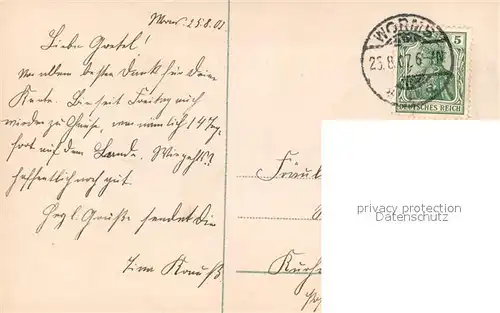 Worms, 25.8.07
Liebe Gretel!
Vor allem besten Dank für Deine
Karte. Bin seit Freitag auch
wieder zu Hause, war nämlich 14 Tag
fort auf dem Lande. Wie geht's?
hoffentlich noch gut.
Herzl. Grüße sendet Dir
WORMS
25.8.07. 6-7N
5
DEUTSCHES REICH
Fräul
privacy protection
Datenschutz